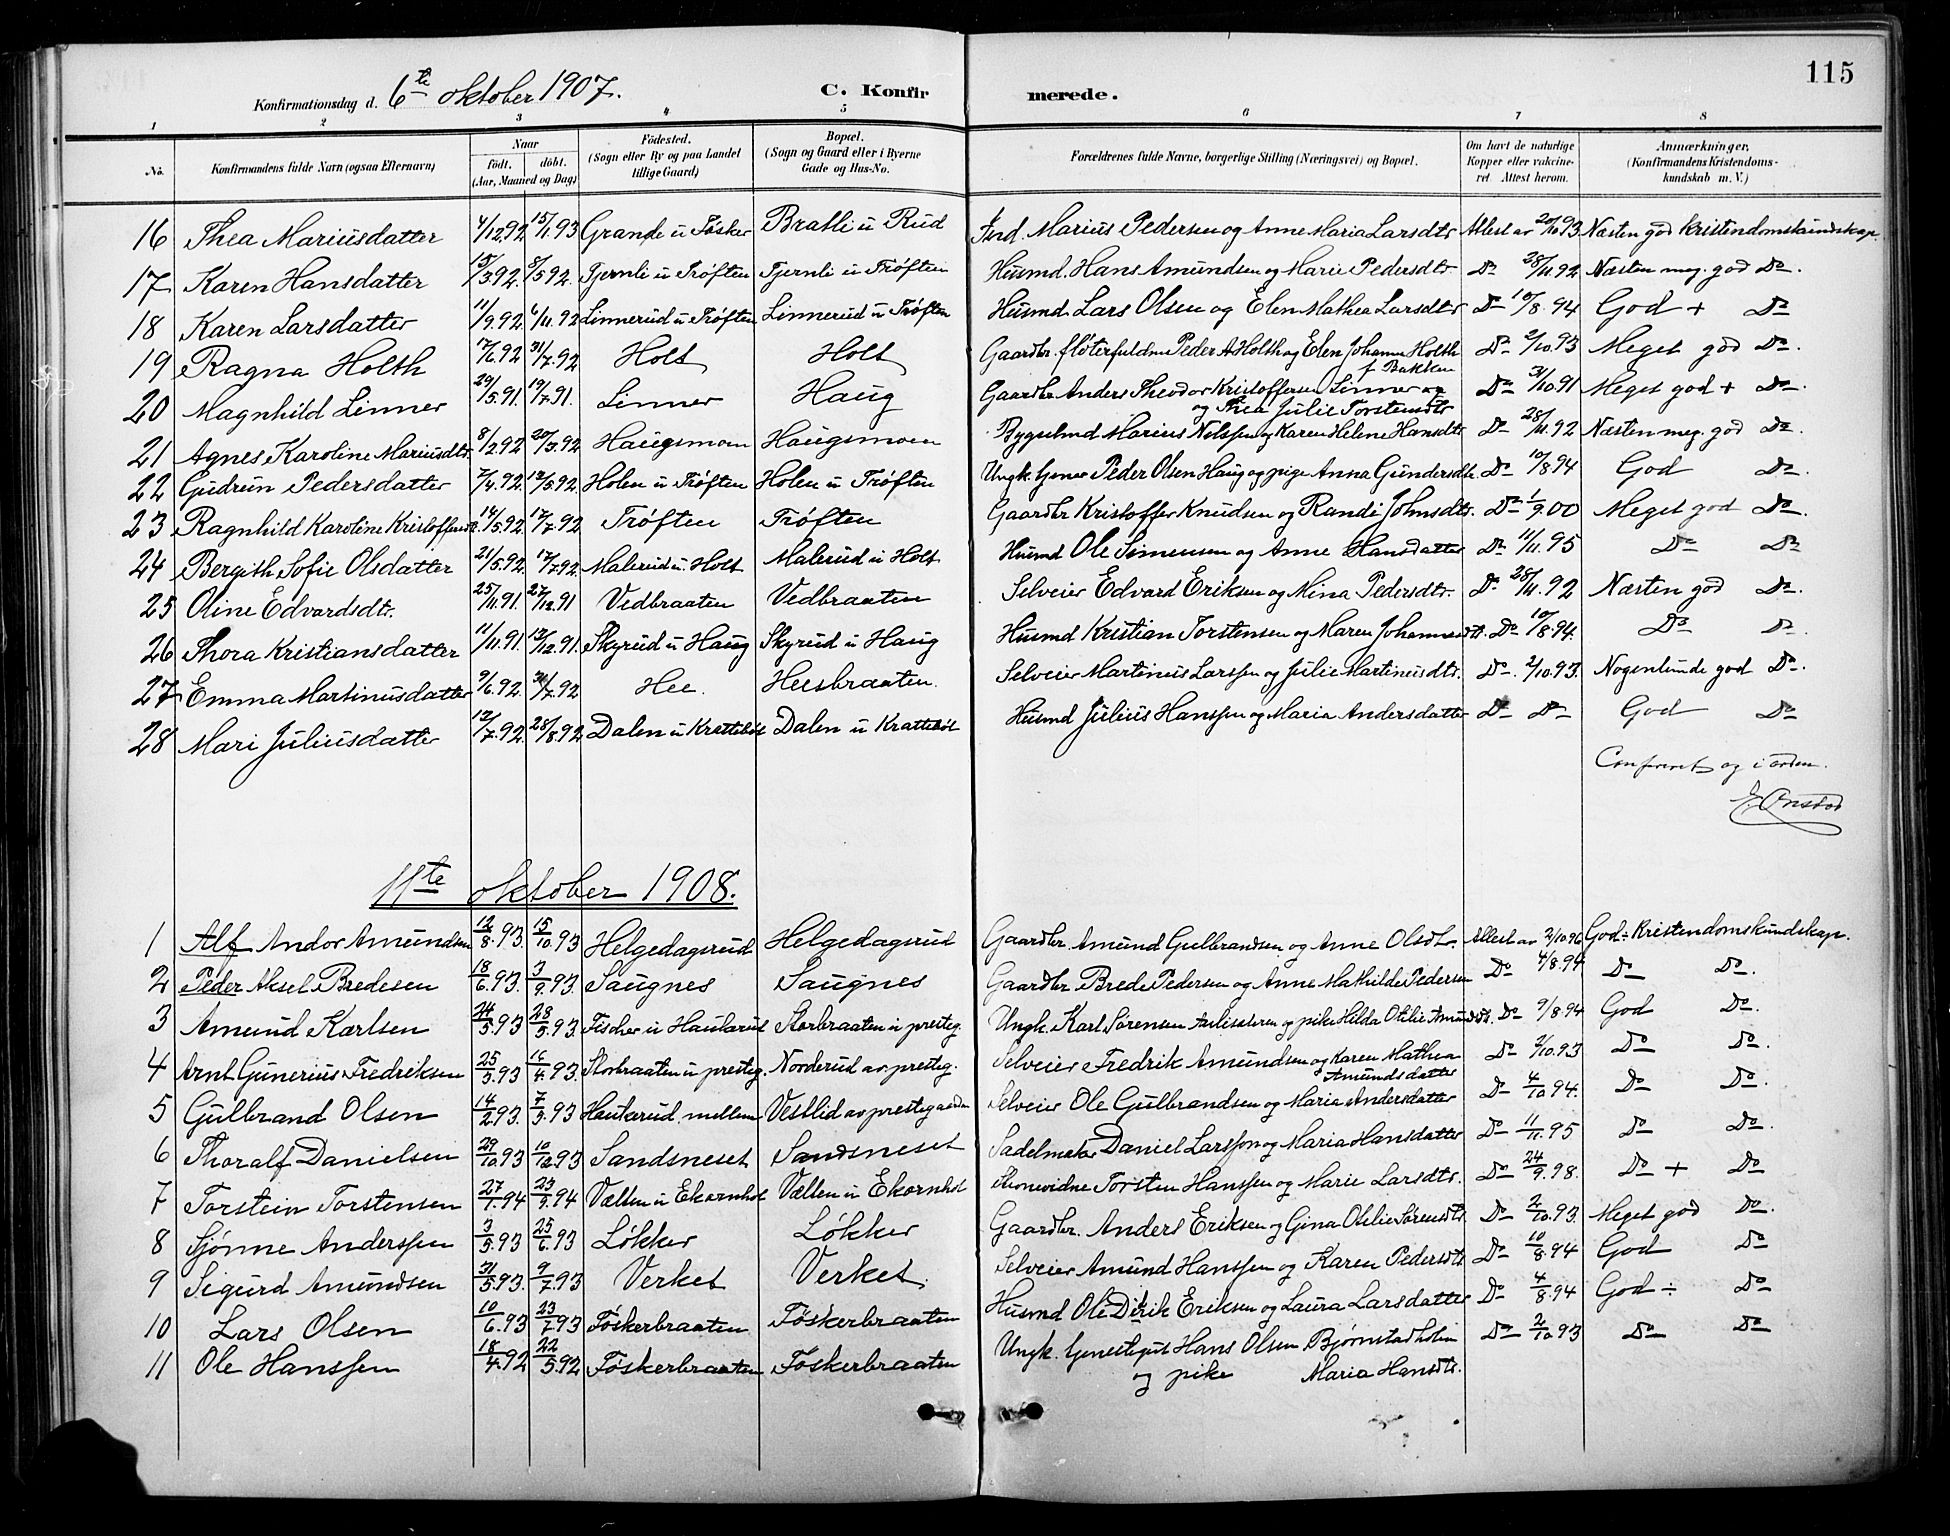 115
Konfirmationsdag d. 6te oktober 1907. C. Konfirmerede.
1 2 3 4 5 6 7 8
No. Konfirmandens fulde Navn (ogsaa Efternavn) Naar født, døbt. (Aar, Maaned og Dag) Fødested. (Sogn eller By og paa Landet tillige Gaard) Bopæl. (Sogn og Gaard eller i Byerne Gade og Hus-No. Forældrenes fulde Navne, borgerlige Stilling (Næringsvei) og Bopæl. Om havt de naturlige Kopper eller vakcineret. Attest herom. Anmærkninger, (Konfirmandens Kristendomskundskab m. V.)
16 Thea Mariusdatter 4/12.92 15/1.93 Grande u Føsker Bratli u Rud Ind. Marius Pedersen og Anne Maria Larsdtr Attest av 20/10 93 Næsten god Kristendomskundskap.
17 Karen Hansdatter 15/3.92. 8/5 92. Tjernli u Trøften Tjernli u Trøften Husmd. Hans Amundsen og Marie Pedersdtr. Do 28/11 92 Næsten meg. god Do.
18 Karen Larsdatter 11/9.92. 6/11.92 Linnerud u Trøften Linnerud u Trøften Husmd. Lars Olsen og Elen Mathea Larsdtr Do 10/8.94 God + Do
19 Ragna Holth 17/6.92 31/7.92 Holt Holt Gaardbr. fløterfuldm Peder A Holth og Elen Johanne Holth f. Bakken Do 2/10.93 Meget god Do.
20 Magnhild Linner 29/5.91. 19/7.91. Linner Haug Gaardbr Anders Theodor Kristoffersen Linner og og Thea Julie Torstensdtr Do 31/10.91 Meget god + Do.
21 Agnes Karoline Mariusdtr. 8/2.92 20/3.92 Haugsmoen Haugsmoen Bygselmd Marius Nilssen og Karen Helene Hansdtr Do 28/11.92 Næsten meg. god Do.
22 Gudrun Pedersdatter 7/4.92. 12/5.92. Holen u Trøften Holen u Trøften Ungk. Gener Peder Olsen Haug og pige Anna Gundersdtr. Do 10/8.94 God Do.
23 Ragnhild Karoline Kristoffersdt. 14/5.92 17/7.92 Trøften Trøften Gaardbr Kristoffer Knudsen og Randi Johnsdtr. Do 1/9.00 Meget god Do.
24 Bergith Sofie Olsdatter 21/5.92. 17/7.92. Malerud u. Holt Malerud u Holt Husmd Ole Simensen og Anne Hansdatter Do 11/11.95 Do Do
25 Oline Edvardsdt. 25/11.91. 27/12.91 Vedbraaten Vedbraaten Selveier Edvard Eriksen og Mina Pedersdtr. Do 28/11.92 Næsten god Do.
26 Thora Kristiansdatter 11/11.91. 13/12.91. Skyrud u Haug Skyrud u Haug Husmd Kristian Torstensen og Maren Johannesdt. Do 10/8.94. Do Do.
27 Emma Martinusdatter 9/6.92. 31/7.92 Hee. Heesbraaten. Selveier Martinus Larssen og Julie Martinusdtr. Do. 2/10.93. Nogenlunde god Do.
28 Mari Juliusdatter 12/7.92. 28/8.92 Dalen u Krattebøl Dalen u Krattebøl Husmd Julius Hanssen og Maria Andersdatter Do Do God Do
Conferert og i orden.
E. Onstad
11te oktober 1908.
1 Alf Andor Amundsen 12/8.93. 15/10.93 Helgedagsrud Helgedagsrud Gaardbr. Amund Gulbrandsen og Anne Olsdt. Attest av 2/10.96 God ÷ Kristendomskundskap.
2 Peder Aksel Bredesen 18/6.93. 3/9.93. Saugnes Saugnes Gaardbr. Brede Pedersen og Anne Mathilde Pedersen Do 4/8.94 Do Do.
3 Amund Karlsen 24/5.93 28/5.93. Fischer u Hauterud Storbraaten u presteg. Ungk. Karl Sørensen og pike Hilda Otilie Amundsdt. Do 9/8.94 God Do.
4 Arnt Gunerius Fredriksen 25/3.93 16/4.93. Storbraaten u presteg. Norderud av presteg. Selveier Fredrik Amundsen og Karen Mathea Amundsdatter Do 2/10.93 Do Do.
5 Gulbrand Olsen 14/2.93. 7/3.93 Hauterud mellem Vestlid av prestegaarden Selveier Ole Gulbrandsen og Maria Andersdatter Do 4/10 94. Do Do.
6 Thoralf Danielsen 29/10.93 10/12.93 Sandsneset Sandsneset Sadelmaker Daniel Larsson og Maria Hansdatter Do 11/11.95 Do Do.
7 Torstein Torstensen 27/1.94 23/3.94 Vællen u Ekornhol Vællen u Ekornhol Torsten Hanssen og Marie Larsdtr. Do 24/9.98. Do + Do
8 Sjønne Anderssen 3/5.93 25/6.93 Løkker Løkker Gaardbr. Anders Eriksen og Gina Otilie Sørensdt. Do 2/10.93. Meget god Do.
9 Sigurd Amundsen 31/5.93. 9/7.93 Verket Verket. Selveier Amund Hanssen og Karen Pedersdt Do 10/8.94 God Do
10 Lars Olsen 10/6.93 23/7.93 Føskerbraaten Føskerbraaten Husmd Ole Didrik Eriksen og Laura Larsdatter Do 4/8.94 God ÷ Do
11 Ole Hanssen 18/4.92 22/5.92 Føskerbraaten Føskerbraaten Ungk. Hans Olsen Bjørnstadholm og pike Maria Hansdtr. Do 2/10 93 Do Do